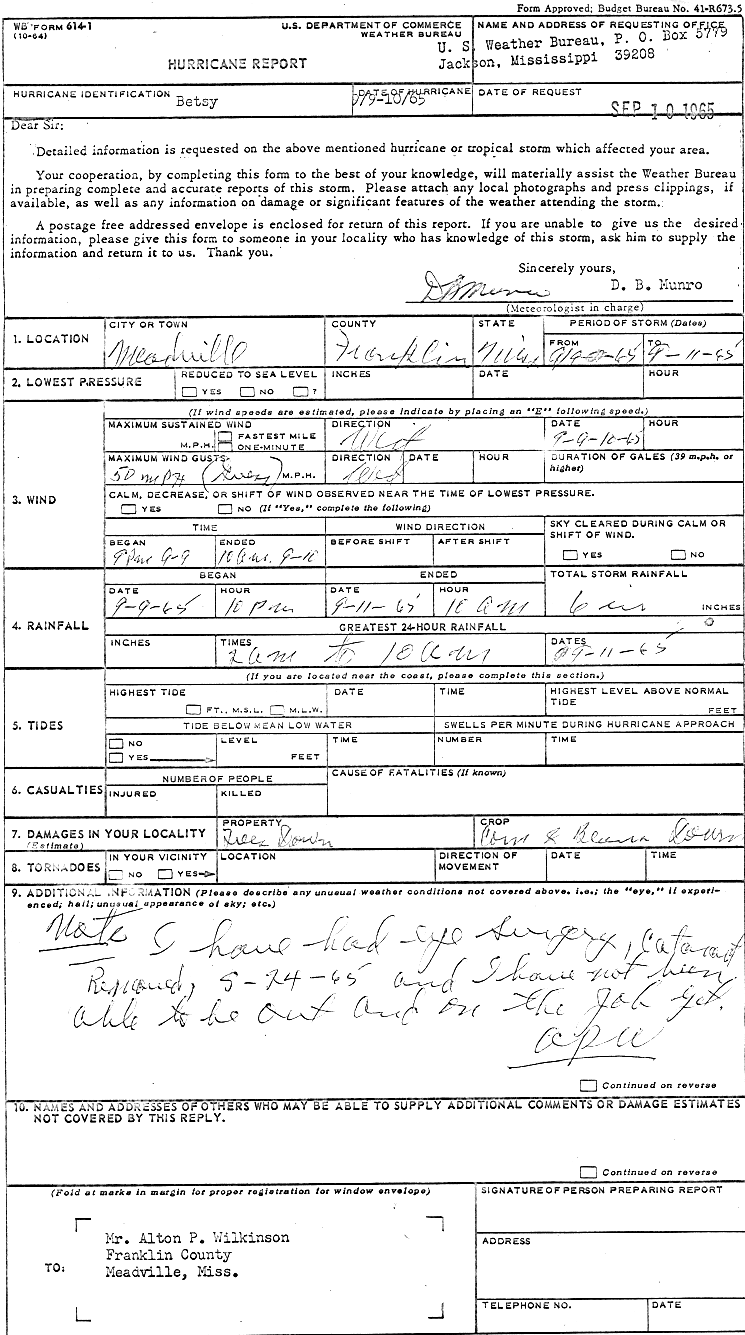 Form Approved; Budget Bureau No. 41-R673.5
WB FORM 614-1
(10-64)
U.S. DEPARTMENT OF COMMERCE
WEATHER BUREAU
HURRICANE REPORT
NAME AND ADDRESS OF REQUESTING OFFICE
U. S. Weather Bureau, P. O. Box 5779
Jackson, Mississippi 39208
HURRICANE IDENTIFICATION
Betsy
DATE OF HURRICANE
9/9-10/65
DATE OF REQUEST
SEP 10 1965
Dear Sir:
Detailed information is requested on the above mentioned hurricane or tropical storm which affected your area.
Your cooperation, by completing this form to the best of your knowledge, will materially assist the Weather Bureau
in preparing complete and accurate reports of this storm. Please attach any local photographs and press clippings, if
available, as well as any information on damage or significant features of the weather attending the storm.
A postage free addressed envelope is enclosed for return of this report. If you are unable to give us the desired
information, please give this form to someone in your locality who has knowledge of this storm, ask him to supply the
information and return it to us. Thank you.
Sincerely yours,
D B Munro
D. B. Munro
(Meteorologist in charge)
1. LOCATION
CITY OR TOWN
Meadville
COUNTY
Franklin
STATE
Miss
PERIOD OF STORM (Dates)
FROM
TO
9-11-65
2. LOWEST PRESSURE
REDUCED TO SEA LEVEL
YES NO ?
INCHES
DATE
HOUR
(If wind speeds are estimated, please indicate by placing an "E" following speed.)
3. WIND
MAXIMUM SUSTAINED WIND
M.P.H. FASTEST MILE
ONE-MINUTE
DIRECTION
West
DATE
9-9-10-65
HOUR
MAXIMUM WIND GUSTS
50 mPH M.P.H.
DIRECTION
West
DATE
HOUR
DURATION OF GALES (39 m.p.h. or
higher)
CALM, DECREASE, OR SHIFT OF WIND OBSERVED NEAR THE TIME OF LOWEST PRESSURE.
YES NO (If "Yes," complete the following)
TIME
WIND DIRECTION
SKY CLEARED DURING CALM OR
SHIFT OF WIND.
YES NO
BEGAN
9 Pm 9-9
ENDED
10 am. 9-10
BEFORE SHIFT
AFTER SHIFT
4. RAINFALL
BEGAN
ENDED
TOTAL STORM RAINFALL
DATE
9-9-65
HOUR
10 Pm
DATE
9-11-65
HOUR
10 am
6 in
INCHES
GREATEST 24-HOUR RAINFALL
INCHES
TIMES
2 am to 10 am
DATES
9-11-65
(If you are located near the coast, please complete this section.)
5. TIDES
HIGHEST TIDE
FT., M.S.L. M.L.W.
DATE
TIME
HIGHEST LEVEL ABOVE NORMAL
TIDE
FEET
TIDE BELOW MEAN LOW WATER
SWELLS PER MINUTE DURING HURRICANE APPROACH
NO
YES
LEVEL
FEET
TIME
NUMBER
TIME
6. CASUALTIES
NUMBER OF PEOPLE
INJURED
KILLED
CAUSE OF FATALITIES (If known)
7. DAMAGES IN YOUR LOCALITY
(Estimate)
PROPERTY
Trees Down
CROP
Corn & Beans Down
8. TORNADOES
IN YOUR VICINITY
NO YES
LOCATION
DIRECTION OF
MOVEMENT
DATE
TIME
9. ADDITIONAL INFORMATION (Please describe any unusual weather conditions not covered above. i.e.; the "eye," if experi-
enced; hail; unusual appearance of sky; etc.)
Note I have had eye surgery, Cataract
Removed, 5-24-65 and I have not been
able to be out and on the Job yet.
APW
Continued on reverse
10. NAMES AND ADDRESSES OF OTHERS WHO MAY BE ABLE TO SUPPLY ADDITIONAL COMMENTS OR DAMAGE ESTIMATES
NOT COVERED BY THIS REPLY.
Continued on reverse
(Fold at marks in margin for proper registration for window envelope)
TO:
Mr. Alton P. Wilkinson
Franklin County
Meadville, Miss.
SIGNATURE OF PERSON PREPARING REPORT
ADDRESS
TELEPHONE NO.
DATE